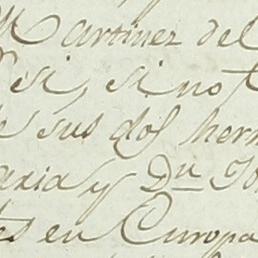 Martinez del
si, si not
e sus dos herm
aria y Dn Jo
tes en Europa